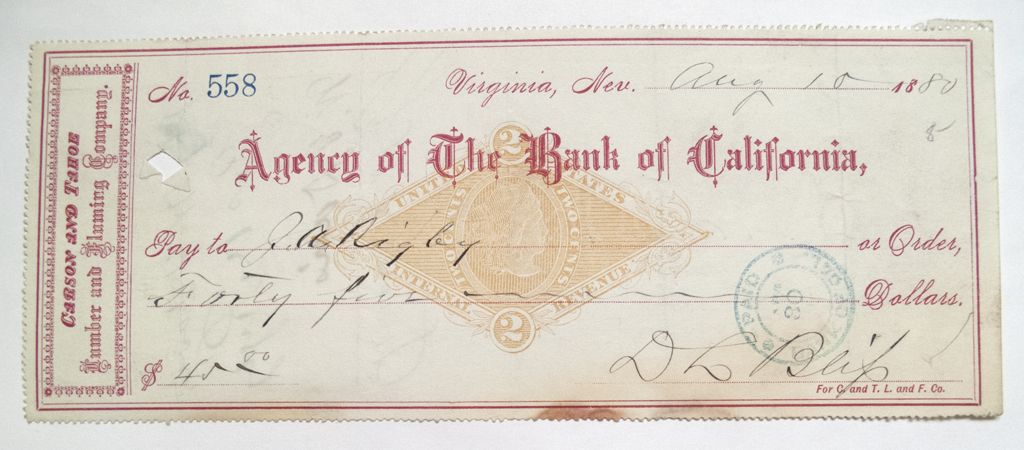 CARSON AND TAHOE
Lumber and Fluming Company.
No. 558
Virginia, Nev. Aug 10 1880
8
Agency of The Bank of California,
2
UNITED STATES
TWO CENTS
INTERNAL REVENUE
2
Pay to J. A. Rigby or Order,
Forty five Dollars.
PAID
$ 45.00
D L Bliss
For C. and T. L. and F. Co.